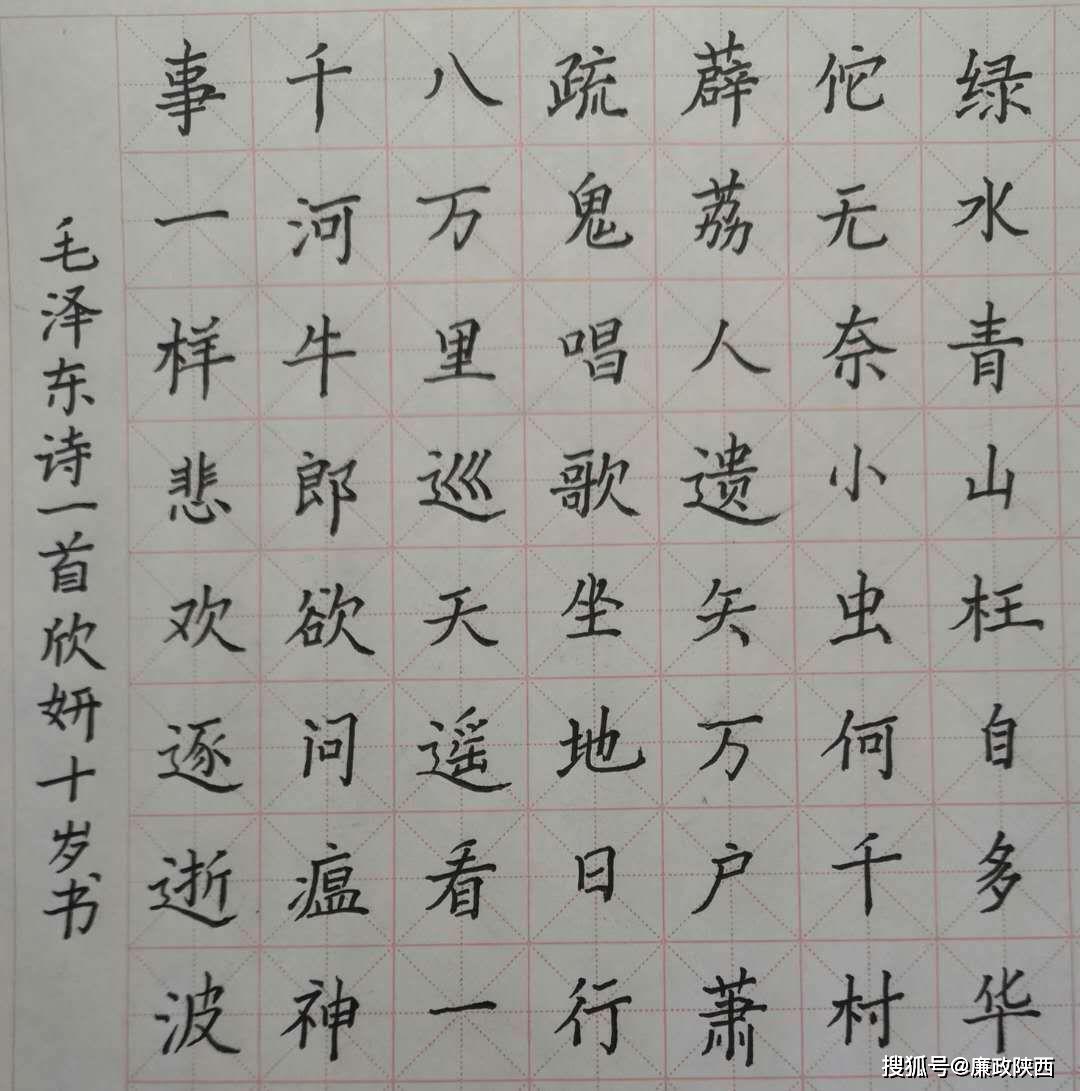 绿水青山枉自多华
佗无奈小虫何千村
薜荔人遗矢万户萧
疏鬼唱歌坐地日行
八万里巡天遥看一
千河牛郎欲问瘟神
事一样悲欢逐逝波
毛泽东诗一首欣妍十岁书
搜狐号@廉政陕西